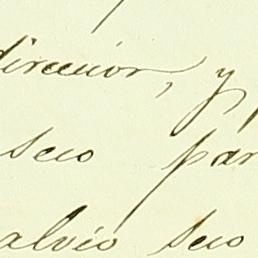 direccion, y
seco par
alveo seco